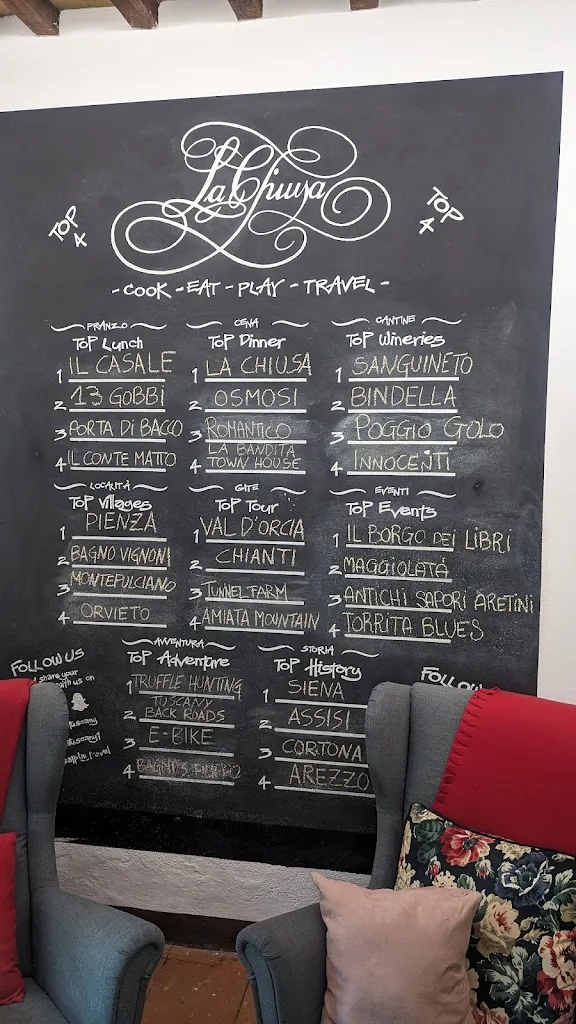 La Chiusa
TOP 4
TOP 4
- COOK - EAT - PLAY - TRAVEL -
PRANZO
TOP Lunch
1 IL CASALE
2 13 GOBBI
3 PORTA Di BACCO
4 IL CONTE MATTO
CENA
TOP Dinner
1 LA CHIUSA
2 OSMOSI
3 ROMANTICO
4 LA BANDITA
TOWN HOUSE
CANTINE
TOP Wineries
1 SANGUINETO
2 BINDELLA
3 POGGIO GOLO
4 INNOCENTI
LOCALITÀ
TOP Villages
1 PIENZA
2 BAGNO VIGNONI
3 MONTEPULCIANO
4 ORVIETO
GITE
TOP Tour
1 VAL D'ORCIA
2 CHIANTI
3 TUNNEL FARM
4 AMIATA MOUNTAIN
EVENTI
TOP Events
1 IL BORGO DEI LIBRI
2 MAGGIOLATA
3 ANTICHI SAPORI ARETINI
4 TORRITA BLUES
AVVENTURA
TOP Adventure
1 TRUFFLE HUNTING
2 TUSCANY
BACK ROADS
3 E-BIKE
4 BAGNI S. FILIPPO
STORIA
TOP History
1 SIENA
2 ASSISI
3 CORTONA
4 AREZZO
FOLLOW US
share your
with us on